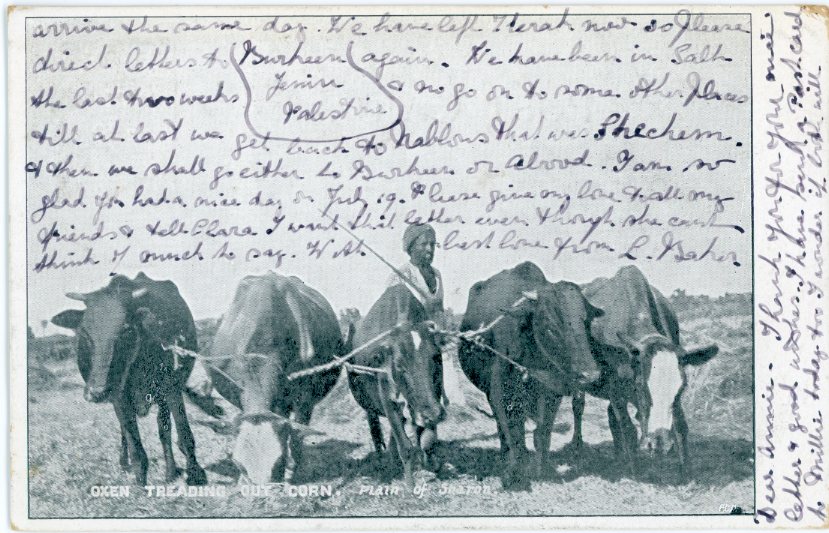 Dear Annie - Thank you for your nice
letter & good wishes. I have sent a Postcard
to Millie today too I wonder if both will
arrive the same day. We have left Terah now so Please
direct letters to Burheen again. We have been in Salt
Jenin
Palestine
the last two weeks & no go on to some other Places
till at last we get back to Nablous that was Shechem.
& then we shall go either to Burheen or Abood. I am so
glad you had a nice day on July 19. Please give my love to all my
friends & tell Clara I want that letter even though she can't
think of much to say. With best love from L. Baker.
OXEN TREADING OUT CORN. Plain of Sharon.